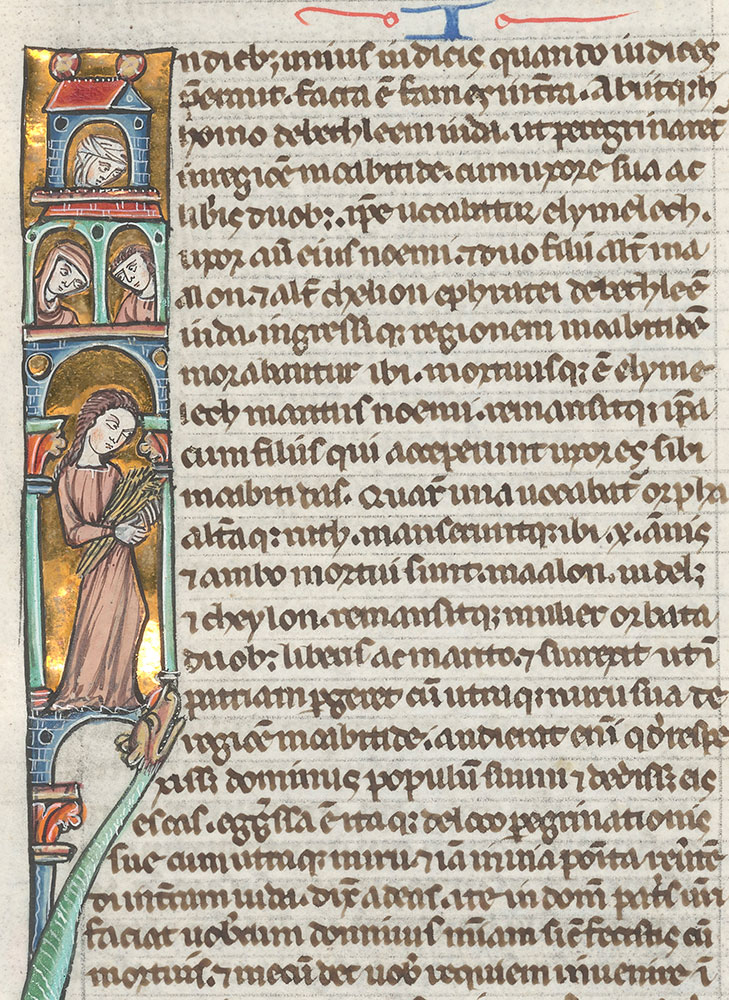 I
n dieb; unius iudicis quando iudices
p̄erant. facta ē fames in t̄ra. Abiitq; h
homo de bethleem iuda. ut peregrinaret̄
in regiōe moabitide. cum uxore sua ac
lib̄is duob;. ip̄e uocabatur elymelech.
uxor aū eius noemi. ⁊ duo filii alt̄ ma
alon. ⁊ alt̄ chelion ephratei de bethleē
iuda. ingressiq; regionem moabitidē
morabantur ibi. mortuusq; ē elyme
lech maritus noemi. remansitq; ip̄a
cum filiis qui acceperunt uxores sibi
moabitidas. Quar̄ una uocabat̄ orpha
alt̄aq; ruth. manseruntq; ibi .x. ānis
⁊ ambo mortui sunt. maalon. uidel;
⁊ cheylon. remansitq; mulier orbata
duob; liberis ac marito. ⁊ surrexit ut ī
patriam ꝑgeret cū utraq; nuru sua de
regiōe moabitide. audierat enī qd̄ respe
xiss; dominus populū suum ⁊ dediss; eis
escas. eḡssa ē itaq; de loco peregrinationis
sue cum utraq; nuru. ⁊ iā in uia posita
in t̄ram iuda. dix̄ ad eas. ite in dom̄ pat̄s ur̄i
faciat uob̄cum dominus mīam sic̄ fecistis cū
mortuis. ⁊ mecū det uob̄ requiem inuenire ī